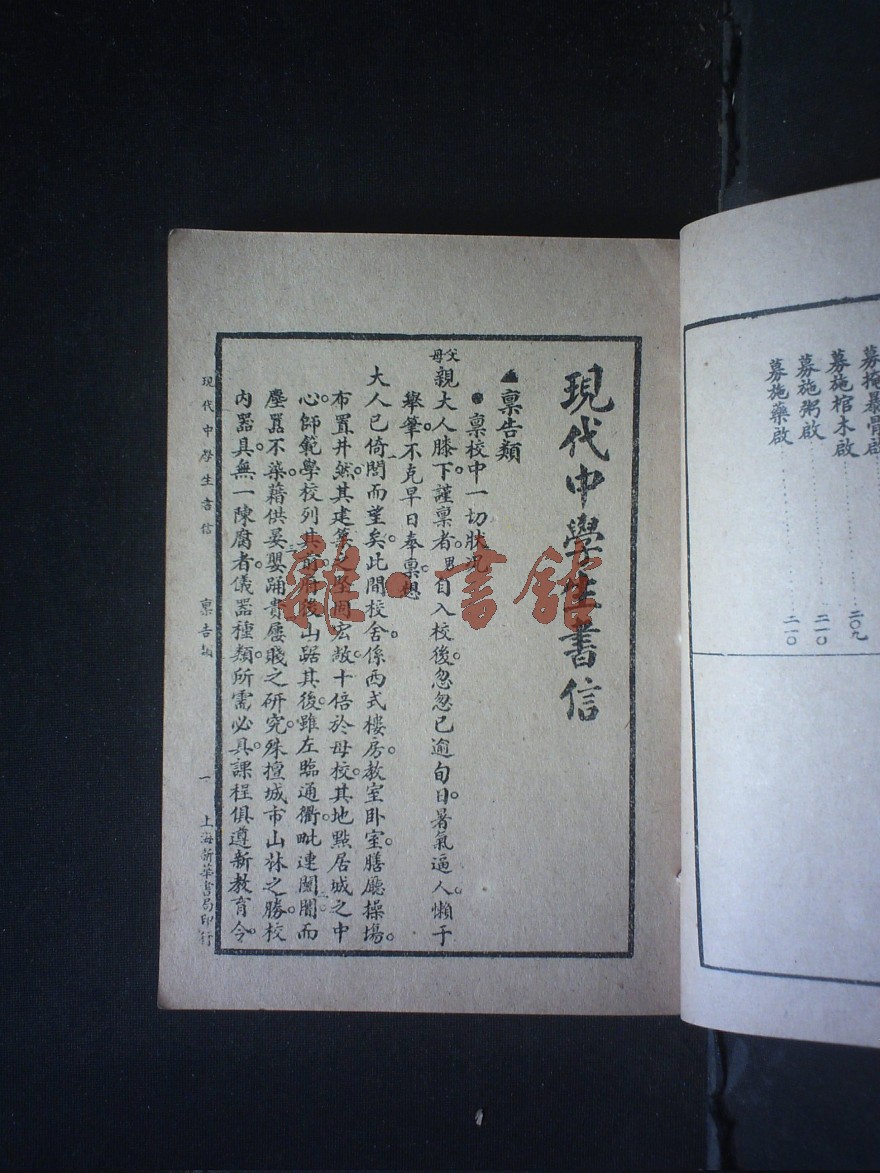 募掩暴骨啟
募施棺木啟 二〇九
募施粥啟 二一〇
募施藥啟 二一〇
現代中學生書信
▲稟告類
●稟校中一切狀況
父母親大人膝下。謹稟者。男自入校後。忽忽已逾旬日。暑氣逼人。懶于
舉筆。不克早日奉稟。想
大人已倚閭而望矣。此間校舍。係西式樓房。教室臥室。膳廳操場。
布置井然。其建築之堅固宏敞。十倍於母校。其地點居城之中
心。師範學校列其前。府後山踞其後。雖左臨通衢。毗連闤闠。而
塵囂不染。藉供晏嬰踊貴屨賤之研究。殊擅城市山林之勝。校
內器具。無一陳腐者。儀器種類。所需必具。課程俱遵新教育令。
現代中學生書信 稟告類 一 上海新華書局印行
雜·書館